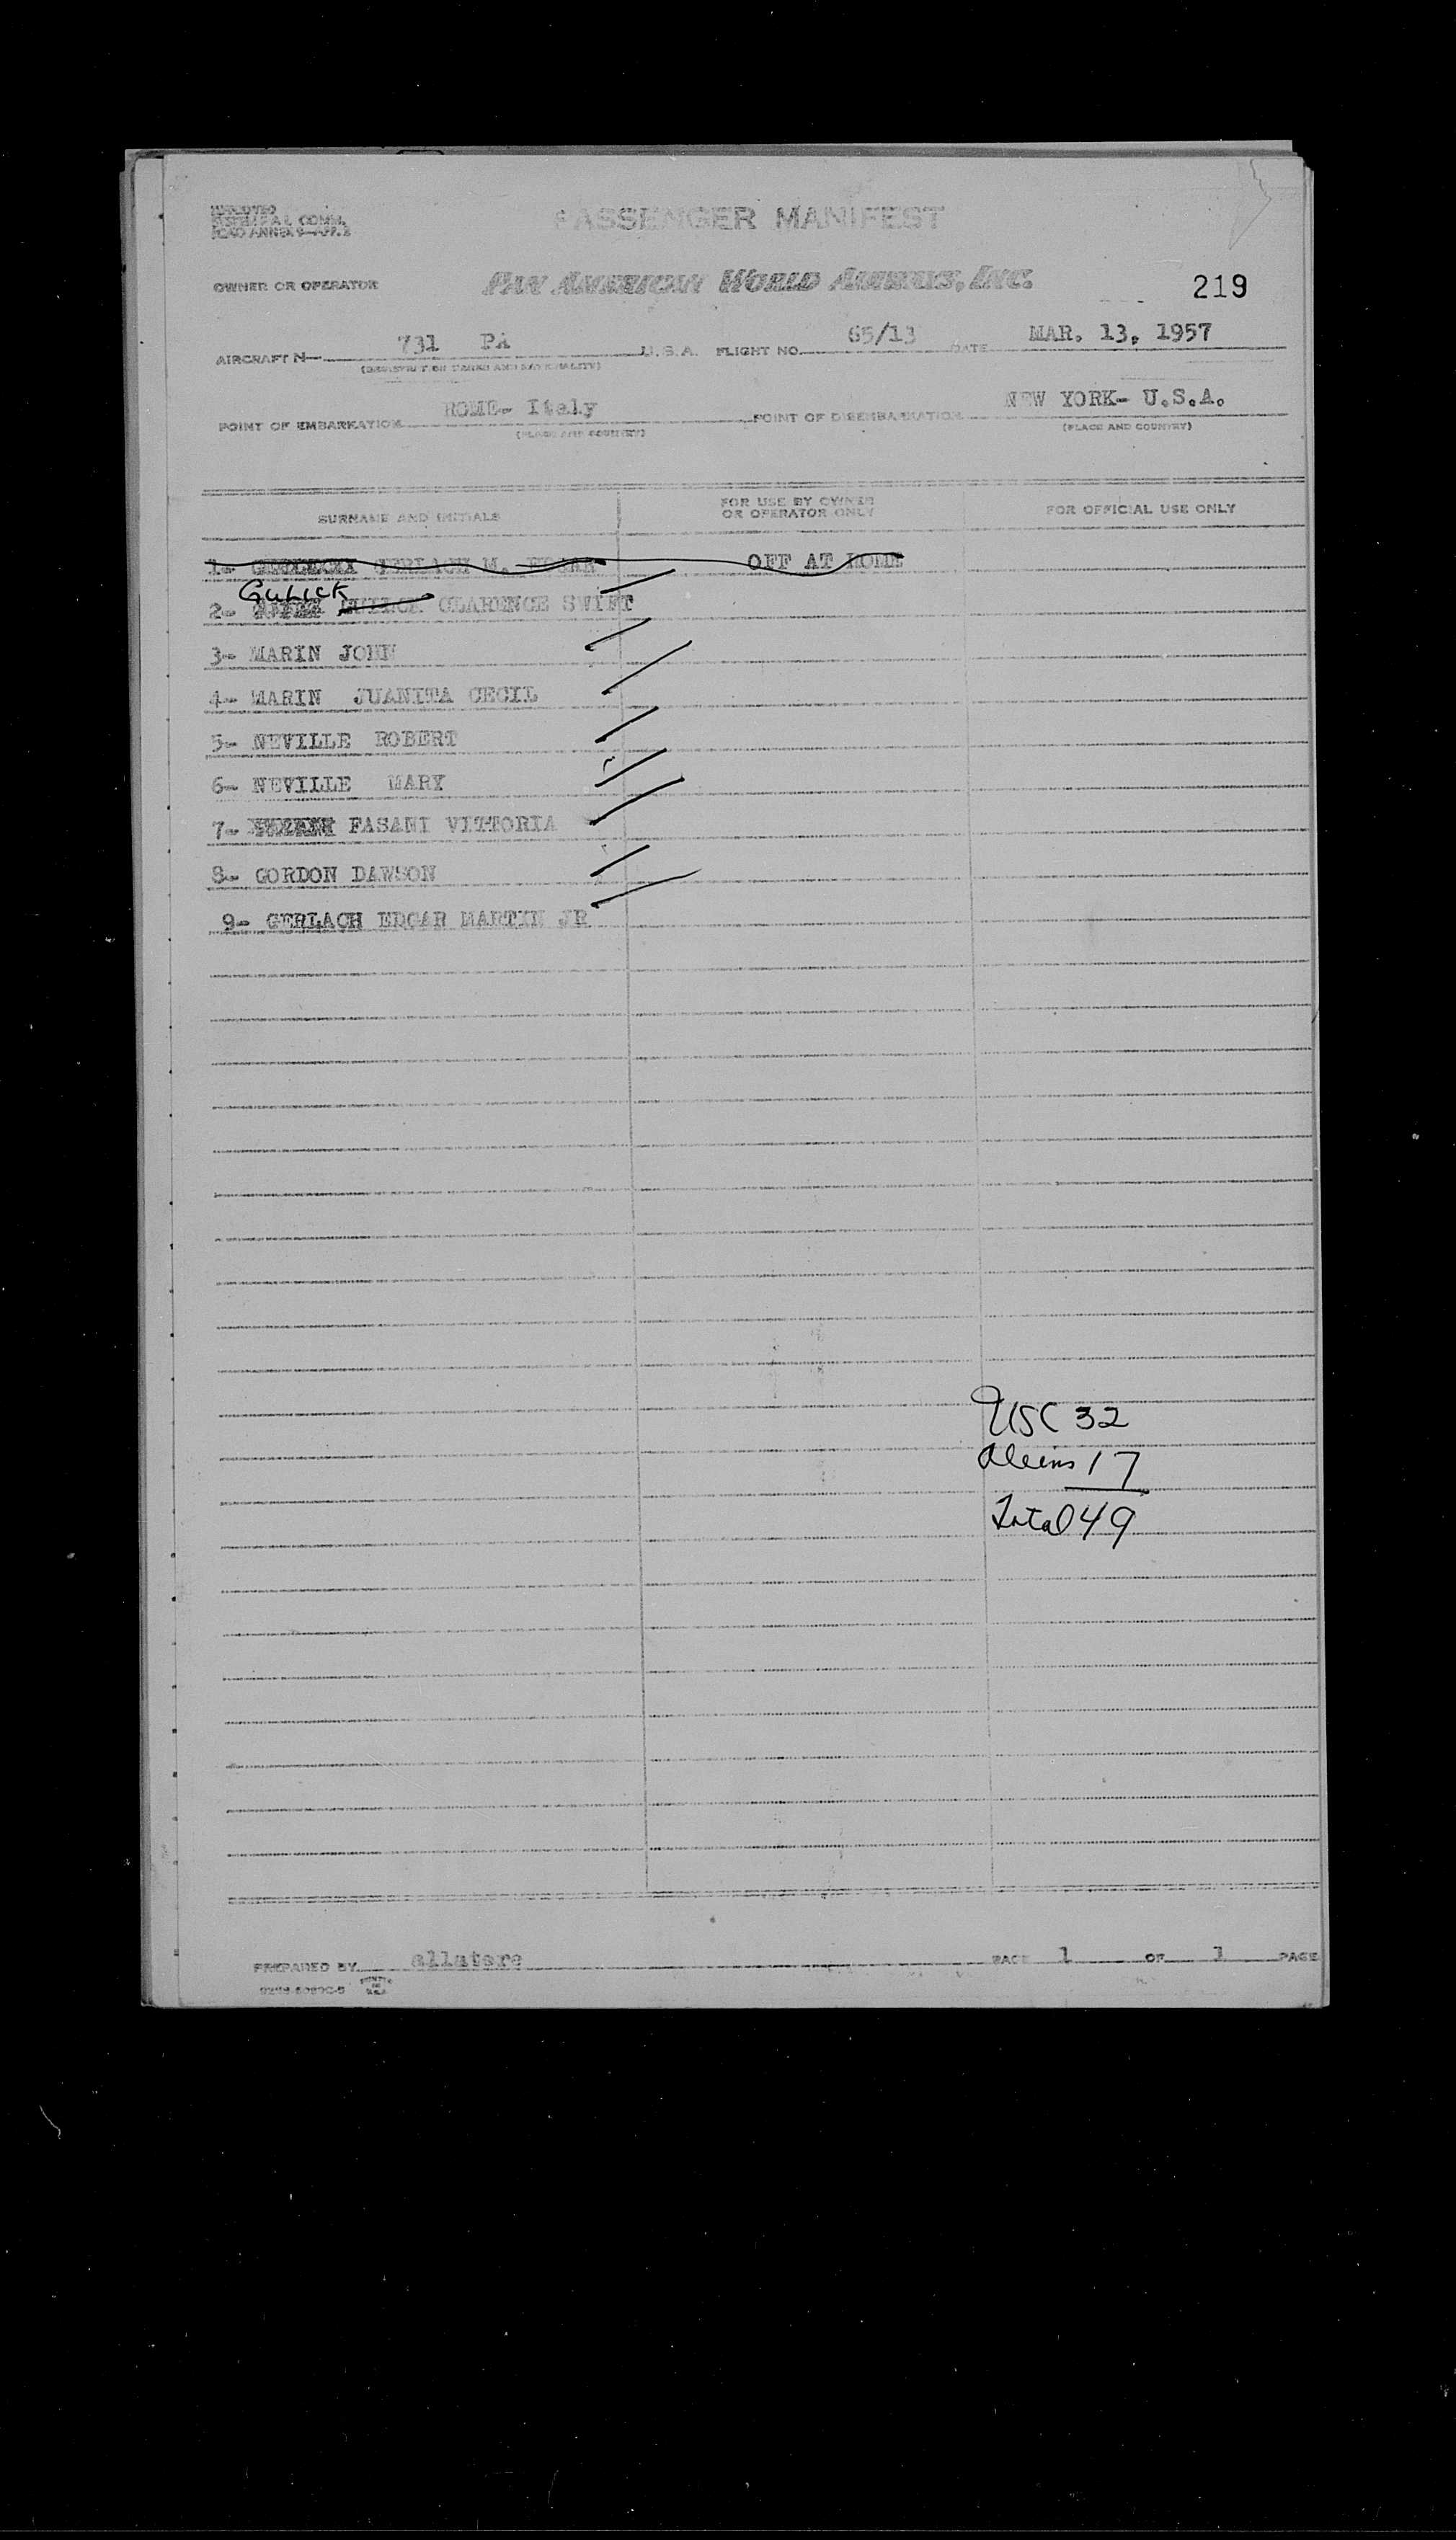 PASSENGER MANIFEST
ICAO ANNEX 9—APP. 2
OWNER OR OPERATOR PAN AMERICAN WORLD AIRWAYS, INC. 219
AIRCRAFT N— 731 PA U.S.A. FLIGHT NO. 65/13 DATE MAR. 13, 1957
POINT OF EMBARKATION ROME- Italy POINT OF DISEMBARKATION NEW YORK- U.S.A.
(PLACE AND COUNTRY) (PLACE AND COUNTRY)
SURNAME AND INITIALS FOR USE BY OWNER OR OPERATOR ONLY FOR OFFICIAL USE ONLY
1- GERLACH M. EDGAR OFF AT ROME
GULICK
2- CLARENCE SWIFT
3- MARIN JOHN
4- MARIN JUANITA CECIL
5- NEVILLE ROBERT
6- NEVILLE MARY
7- FASANI VITTORIA
8- GORDON DAWSON
9- GERLACH EDGAR MARTIN JR
USC 32
Aliens 17
Total 49
PREPARED BY allatere PAGE 1 OF 1 PAGE
PRINTED IN U.S.A.